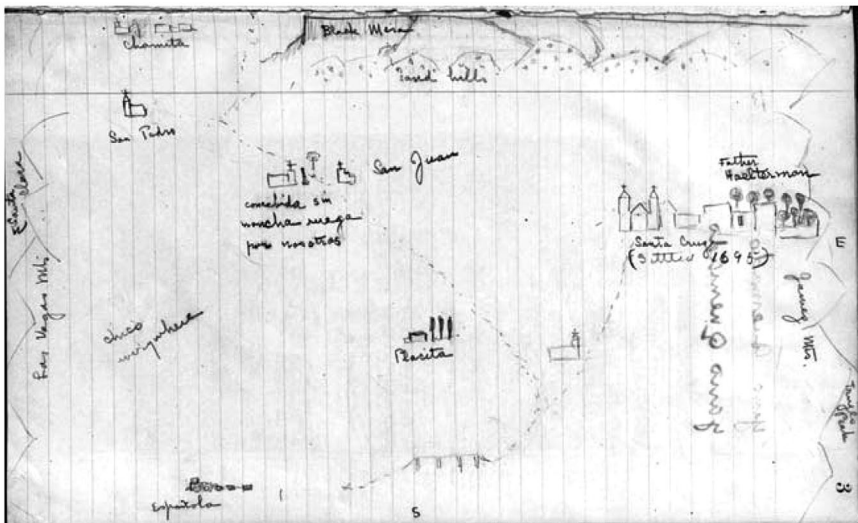 Chamita
Black Mesa
Sand hills
San Pedro
San Juan
concebida sin
mancha ruega
por nosotros
Father
Haelterman
Santa Cruz
(Settled 1695)
E
Santa
Clara
Las Vegas Mts.
chico
everywhere
Placita
James Mts.
Peak
Española
S
3